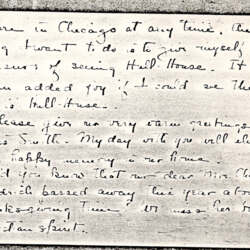 are in Chicago at any time, the
thing I want to do is to give myself
pleasure of seeing Hull-House. It
an added joy if I could see the
Hull-House.
Please give my very warm greetings
Miss Smith. My day with you will
happy memory
you know that our dear Mrs.
passed away this year
Thanksgiving time. We miss her
spirit.